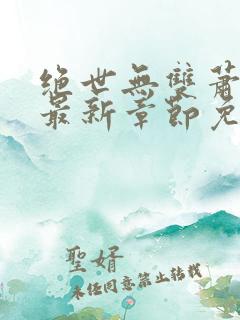 絕世無雙蕭
最新章節免
聖婿
未经同意禁止转载